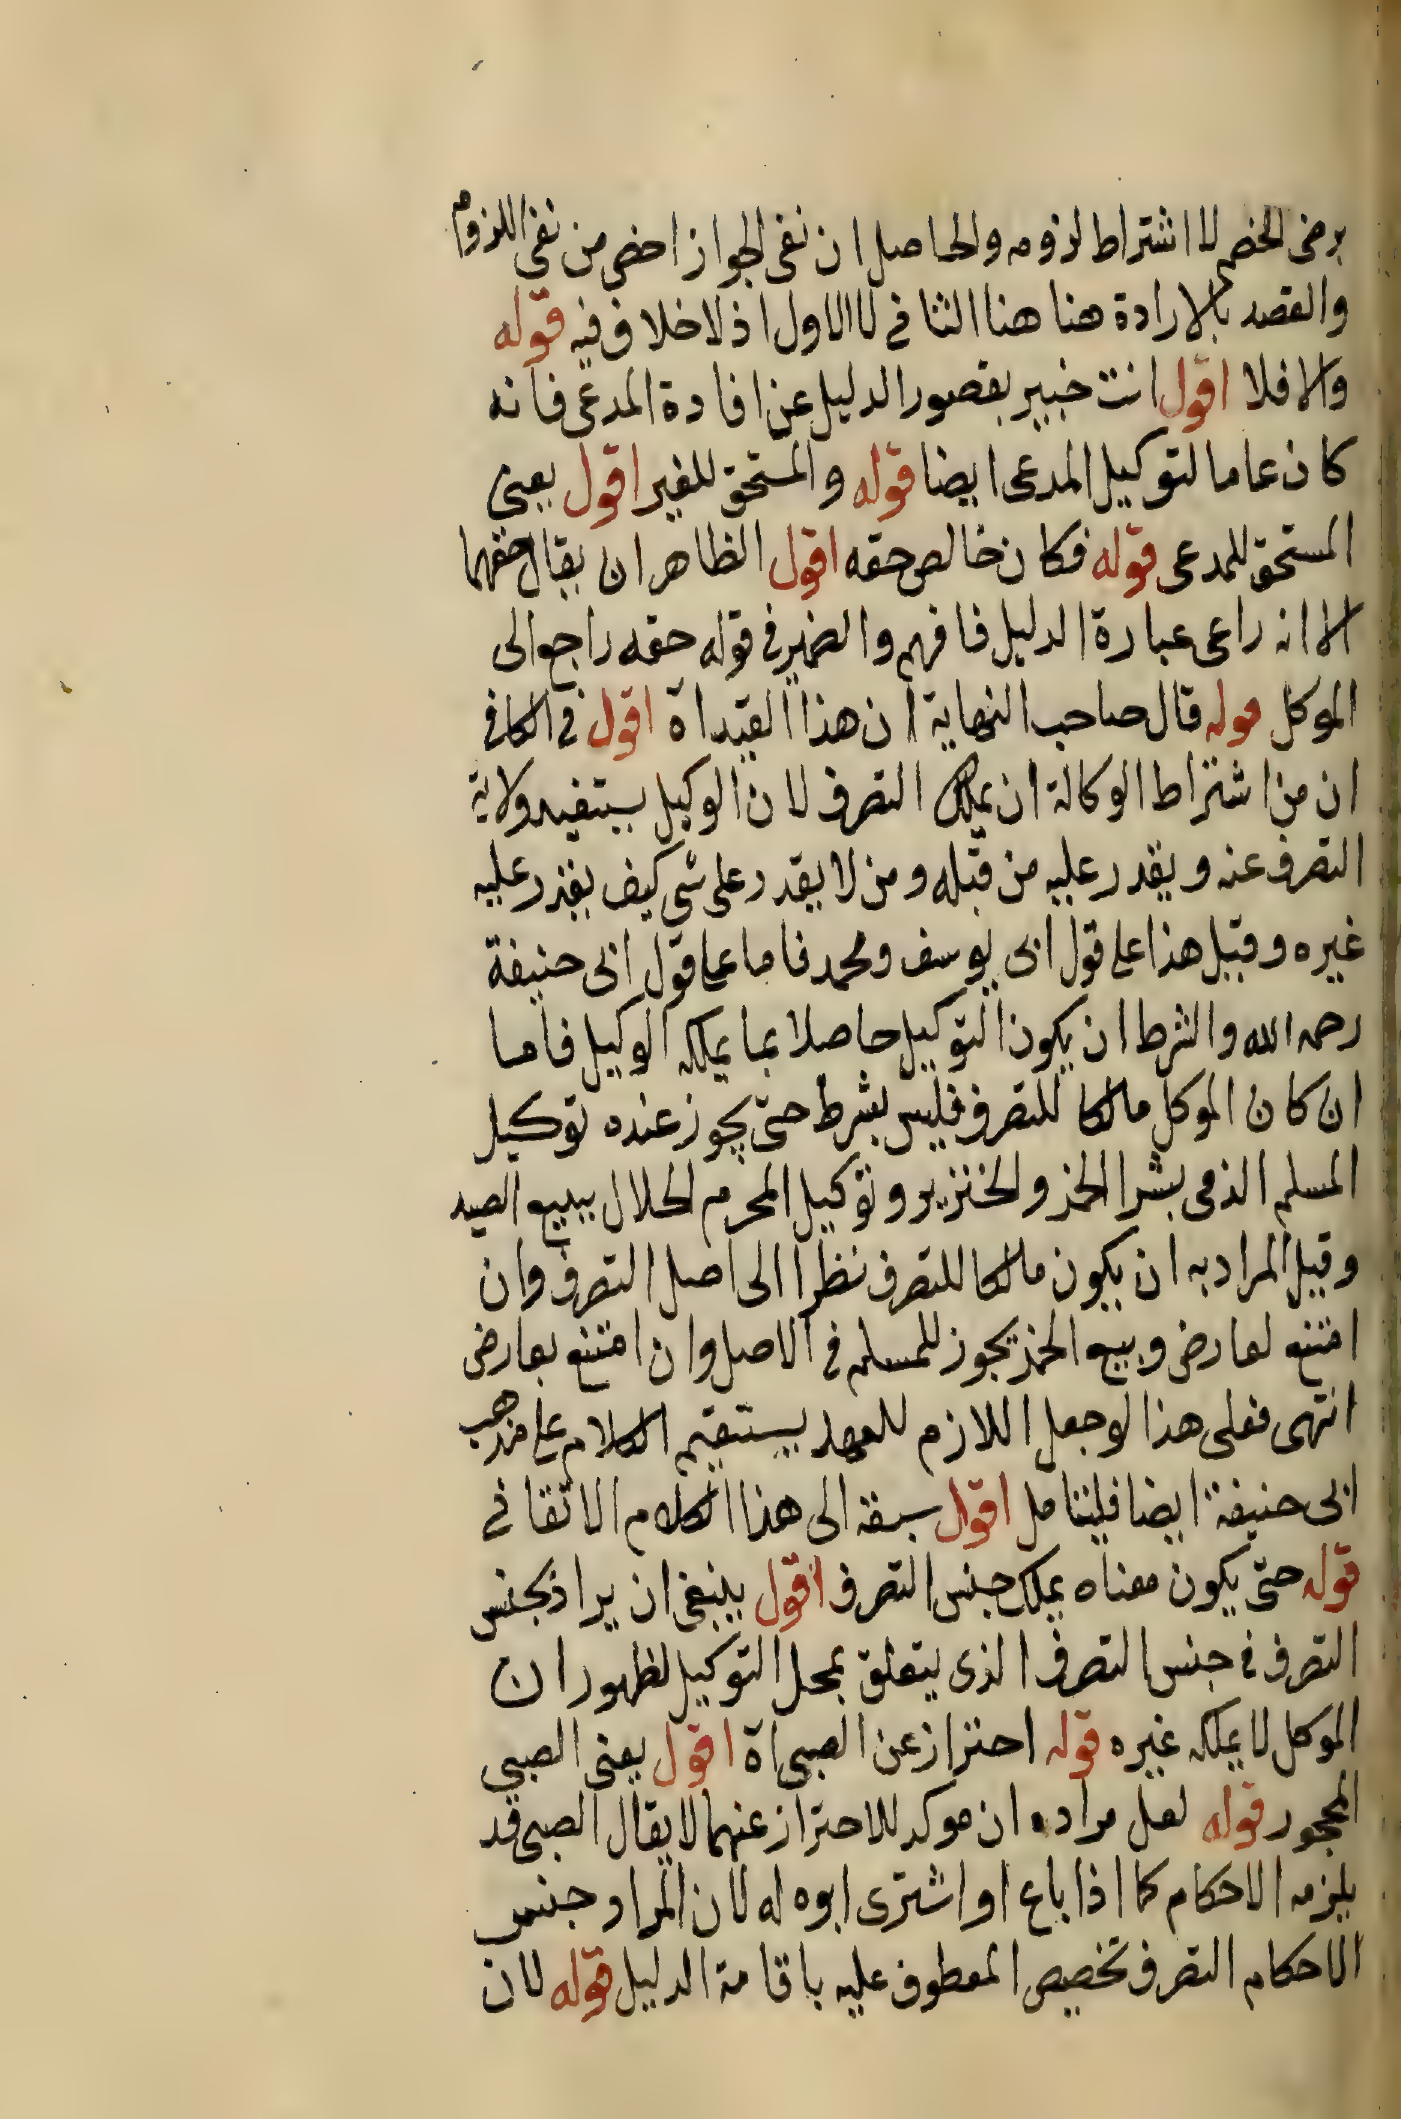 برضى الخصم لا اشتراط لزومه والحاصل ان نفى الجواز اخص من نفى اللزوم
والقصد بالارادة هنا هنا الثانى لا الاول اذ لا خلاف فيه قوله
والا فلا اقول انت خبير بقصور الدليل عن افادة المدعى فانه
كان عاما لتوكيل المدعى ايضا قوله والمستحق للغير اقول يعنى
المستحق للمدعى قوله فكان خالص حقه اقول الظاهر ان يقال حقهما
الا انه راعى عبارة الدليل فافهم والضمير فى قوله حقه راجع الى
الموكل قوله قال صاحب النهاية ان هذا القيد اه اقول فى الكافى
ان من اشتراط الوكالة ان يملك التصرف لان الوكيل يستفيد ولاية
التصرف عنه ويقدر عليه من قبله ومن لا يقدر على شى كيف يقدر عليه
غيره وقيل هذا على قول ابى يوسف ومحمد فاما على قول ابى حنيفة
رحمه الله والشرط ان يكون التوكيل حاصلا بما يملكه الوكيل فاما
ان كان الموكل مالكا للتصرف فليس بشرط حتى يجوز عنده توكيل
المسلم الذمى بشرا الخمر والخنزير وتوكيل المحرم الحلال ببيع الصيد
وقيل المراد به ان يكون مالكا للتصرف نظرا الى اصل التصرف وان
امتنع لعارض وبيع الخمر يجوز للمسلم فى الاصل وان امتنع بعارض
انتهى فعلى هذا لو جعل اللازم للعهد يستقيم الكلام على مذهب
ابى حنيفة ايضا فليتامل اقول سبقه الى هذا الكلام الاتقانى
قوله حتى يكون معناه يملك جنس التصرف اقول ينبغى ان يراد بجنس
التصرف فى جنس التصرف الذى يتعلق بمحل التوكيل لظهور ان
الموكل لا يملكه غيره قوله احتراز عن الصبى اه اقول يعنى الصبي
المحجور قوله لعل مراده ان موكد للاحتراز عنهما لا يقال الصبى قد
يلزمه الاحكام كما اذا باع او اشترى ابوه له لان المراد جنس
الاحكام التصرف تخصيص المعطوف عليه باقامة الدليل قوله لان